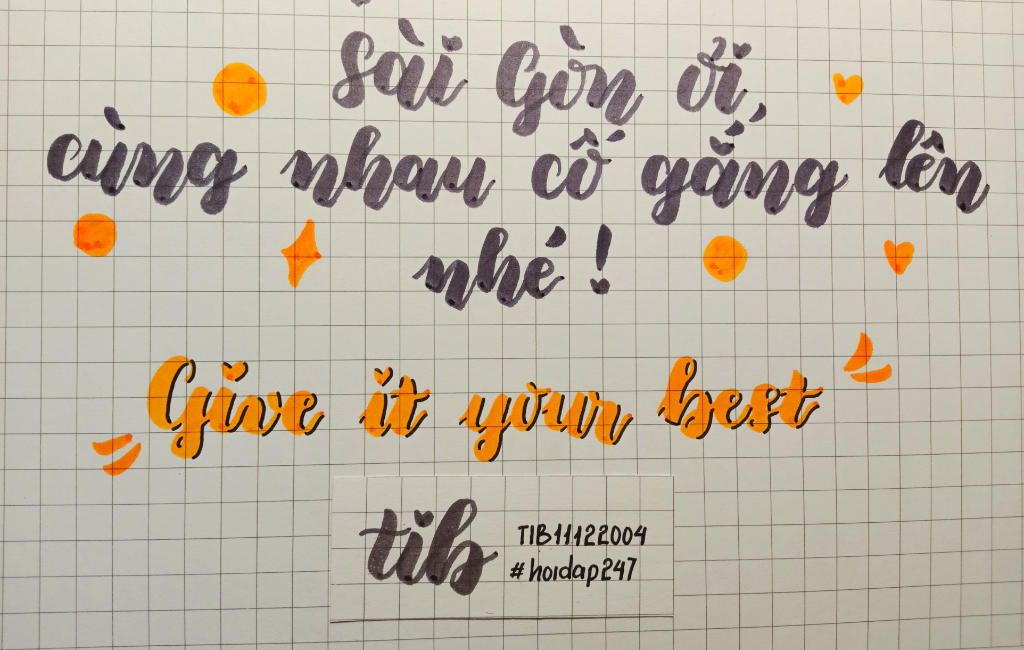 Sài Gòn ơi,
cùng nhau cố gắng lên
nhé!
Give it your best
tib
TIB11122004
#hoidap247